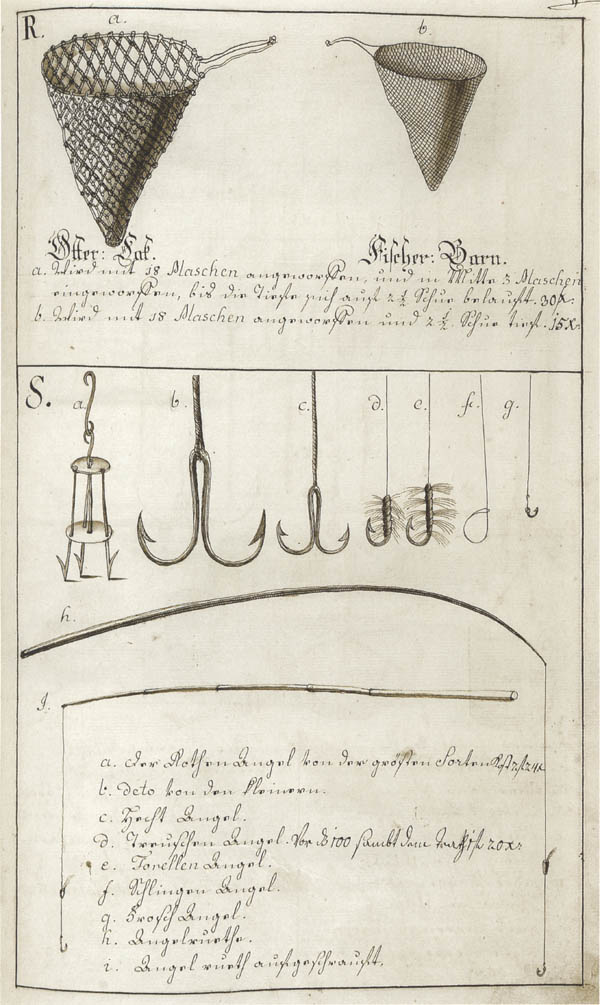 R.
a.
b.
Otter: Sak.
Fischer: Barn.
a. Wird mit 18 Maschen angeworffen, und in Mitte 3 Maschen
eingeworffen, bis die Tieffe sich auff 2 1/2 Schue belaufft. 30x:
b. Wird mit 18 Maschen angeworffen und 2 1/2 Schue tieff. 15x:
S.
a. b. c. d. e. f. g.
h.
I.
a. der Rothen Angel von der grösten Sorten
b. deto von den kleinern.
c. Hecht Angel.
d. Treuschen Angel. Vor 100 sambt dem 20x:
e. Forellen Angel.
f. Schlingen Angel.
g. Frosch Angel.
h. Angelruethe.
i. Angel rueth auffgeschraufft.